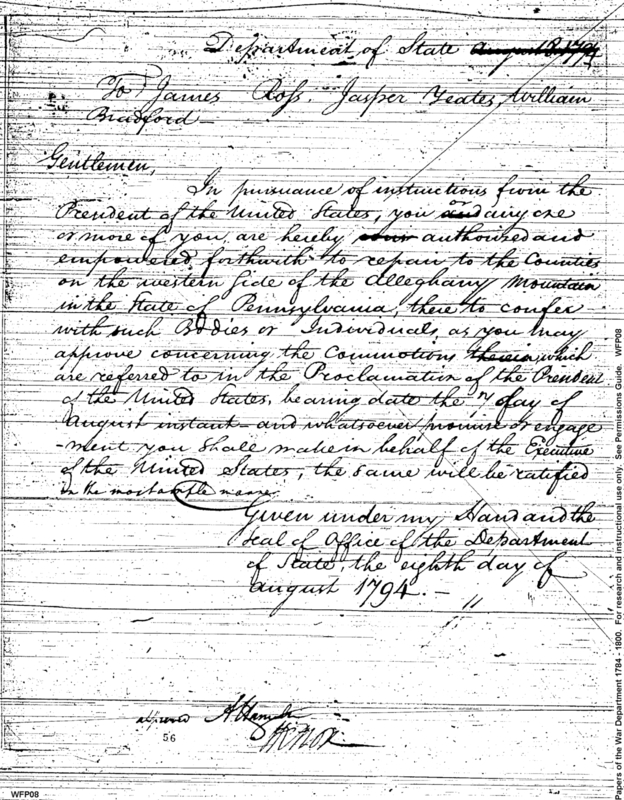 Department of State August 8. 1794
To James Ross, Jasper Yeates, William
Bradford
Gentlemen,
In pursuance of instructions from the
President of the United States, you and or any one
or more of you are hereby authorized and
empowered forthwith to repair to the Counties
on the western side of the Alleghany Mountain
in the State of Pennsylvania, there to confer
with such Bodies or Individuals, as you may
approve concerning the Commotions therein, which
are referred to in the Proclamation of the President
of the United States, bearing date the 7 day of
August instant - and whatsoever promise or engage
-ment you shall make in behalf of the Executive
of the United States, the same will be ratified
in the most ample manner
Given under my Hand and the
seal of Office of the Department
of State, the eighth day of
August 1794. - "
approved A Hamilton
HKnox
56
WFP08
Papers of the War Department 1784 - 1800. For research and instructional use only. See Permissions Guide. WFP08